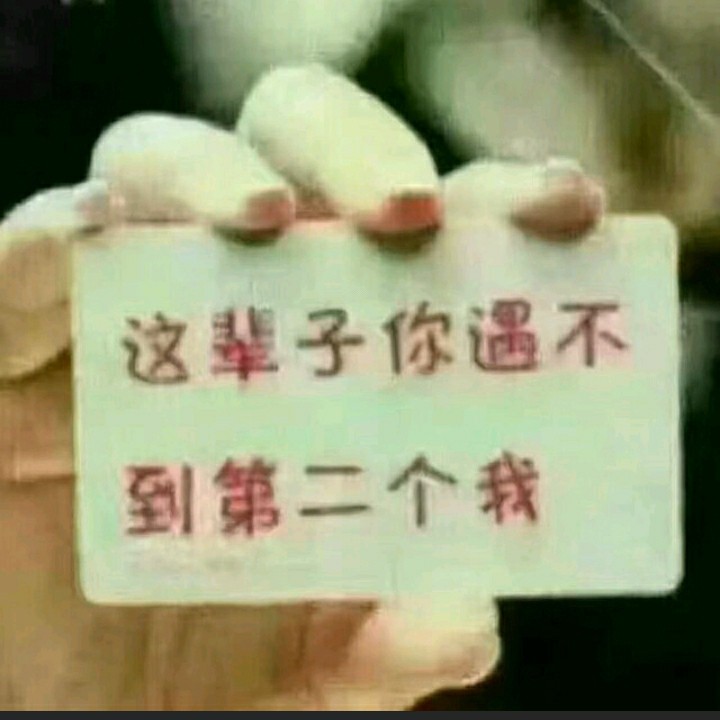 这辈子你遇不
到第二个我